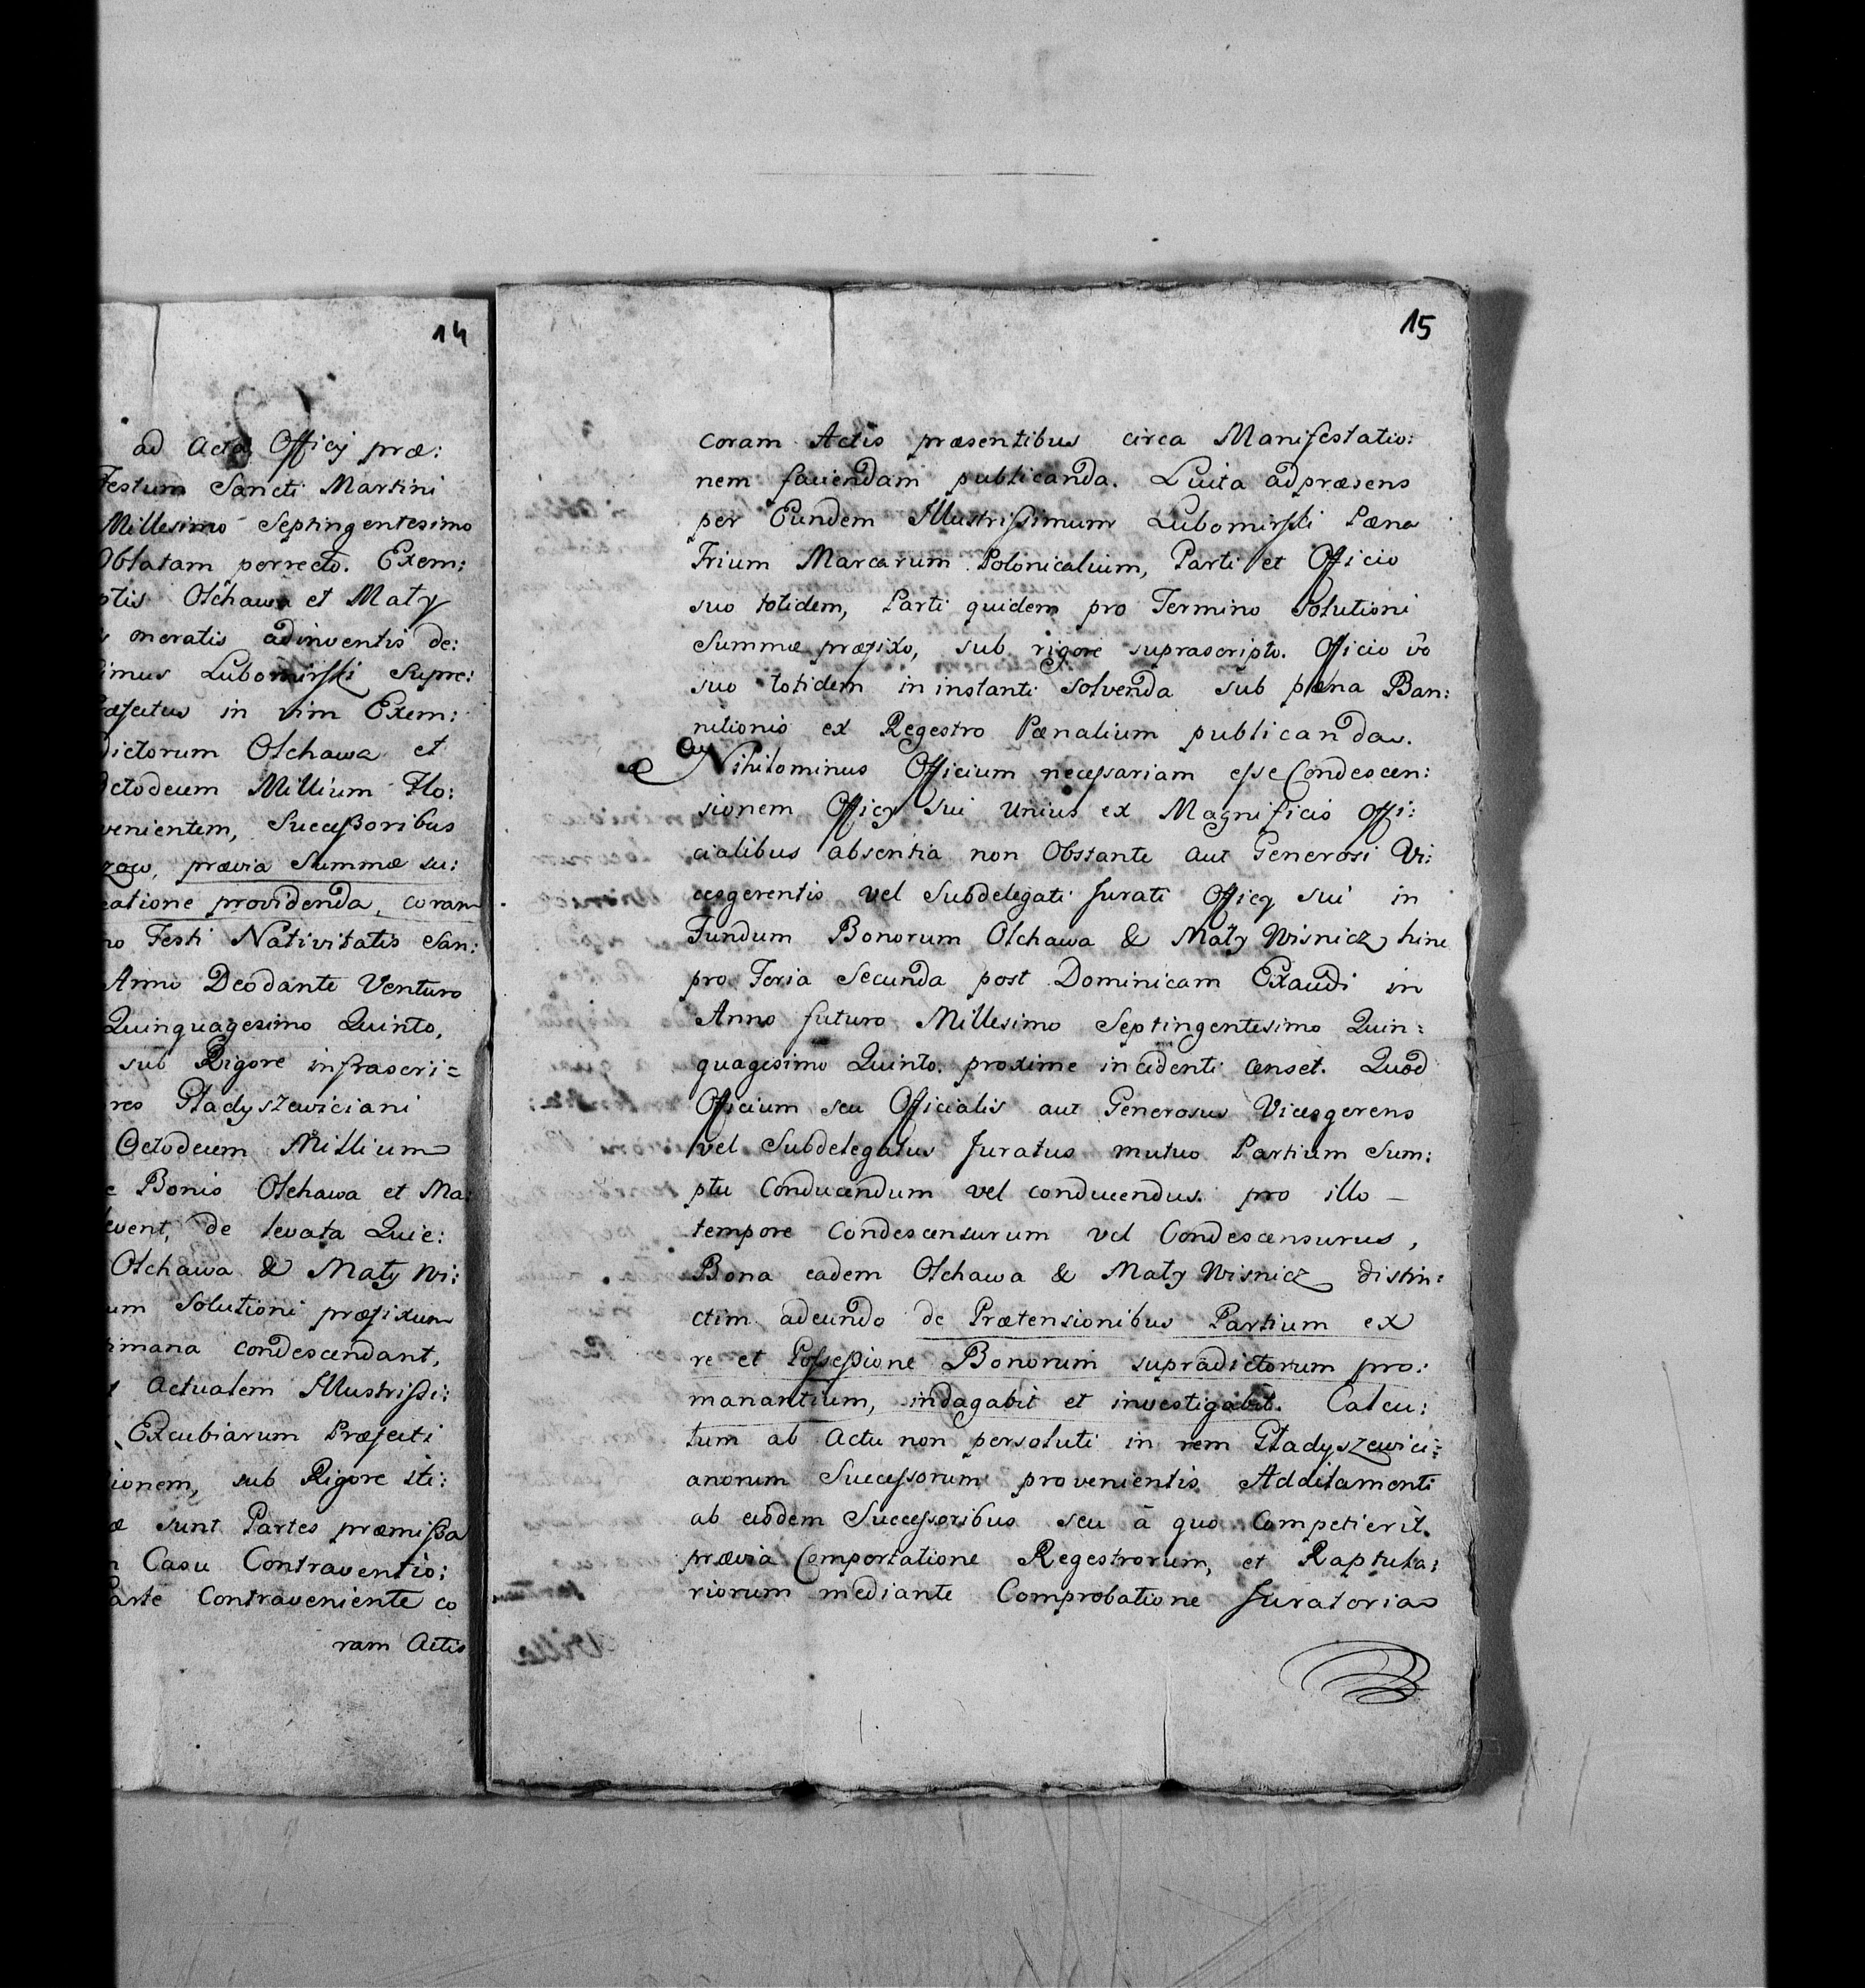 14
ad Acta Officij præ:
Festum Sancti Martini
Millesimo Septingentesimo
Oblatam porrecto. Exem:
ptis Olchawa et Mały
oneratis adinventis de:
imus Lubomirski Supre:
æfectus in vim Exem:
dictorum Olchawa et
Octodecim Millium Flo:
venientem, Successoribus
prævia Summæ su:
catione providenda, coram
no Festi Nativitatis San:
Anno Deodante Venturo
Quinquagesimo Quinto,
sub Rigore infrascri=
res Gładyszewiciani
Octodecim Millium
e Bonis Olchawa et Ma:
levent, de levata Quie:
Olchawa & Mały Wi:
um Solutioni præfixum
timana condescendant,
Actualem Illustrissi:
Excubiarum Præfecti
ionem, sub Rigore iti:
æ sunt Partes præmissa
n Casu Contraventio:
Parte Contraveniente co
ram Actis
15
coram Actis præsentibus circa Manifestatio:
nem faciendam publicanda. Luita adpræsens
per Eundem Illustrissimum Lubomirski Pæna
Trium Marcarum Polonicalium, Parti et Officio
suo totidem, Parti quidem pro Termino Solutioni
Summæ præfixo, sub rigore suprascripto. Officio vo
suo totidem in instanti solvenda sub pæna Ban:
nitionis ex Regestro Pænalium publicandæ.
Nihilominus Officium necessariam esse Condescen:
sionem Officij sui unius ex Magnificis Offi:
cialibus absentia non Obstante aut Generosi Vi:
cesgerentis vel Subdelegati Jurati Officij sui in
Fundum Bonorum Olchawa & Mały Wisnicz hinc
pro Feria Secunda post Dominicam Exaudi in
Anno futuro Millesimo Septingentesimo Quin:
quagesimo Quinto. proxime incidenti censet. Quod
Officium seu Officialis aut Generosus Vicesgerens
vel Subdelegatus Juratus mutuo Partium Sum:
ptu Conducendum vel conducendus. pro illo –
tempore Condescensurum vel Condescensurus,
Bona eadem Olchawa & Mały Wisnicz distin:
ctim adeundo de Prætensionibus Partium ex
re et Possessione Bonorum supradictorum pro:
manantium, indagabit et investigabit. Calcu:
lum ab Actu non persoluti in rem Gładyszewici:
anorum Successorum provenientis Additamenti
ab eisdem Successoribus seu à quo Competierit.
prævia Comportatione Regestrorum, et Raptula:
riorum mediante Comprobatione Juratoria